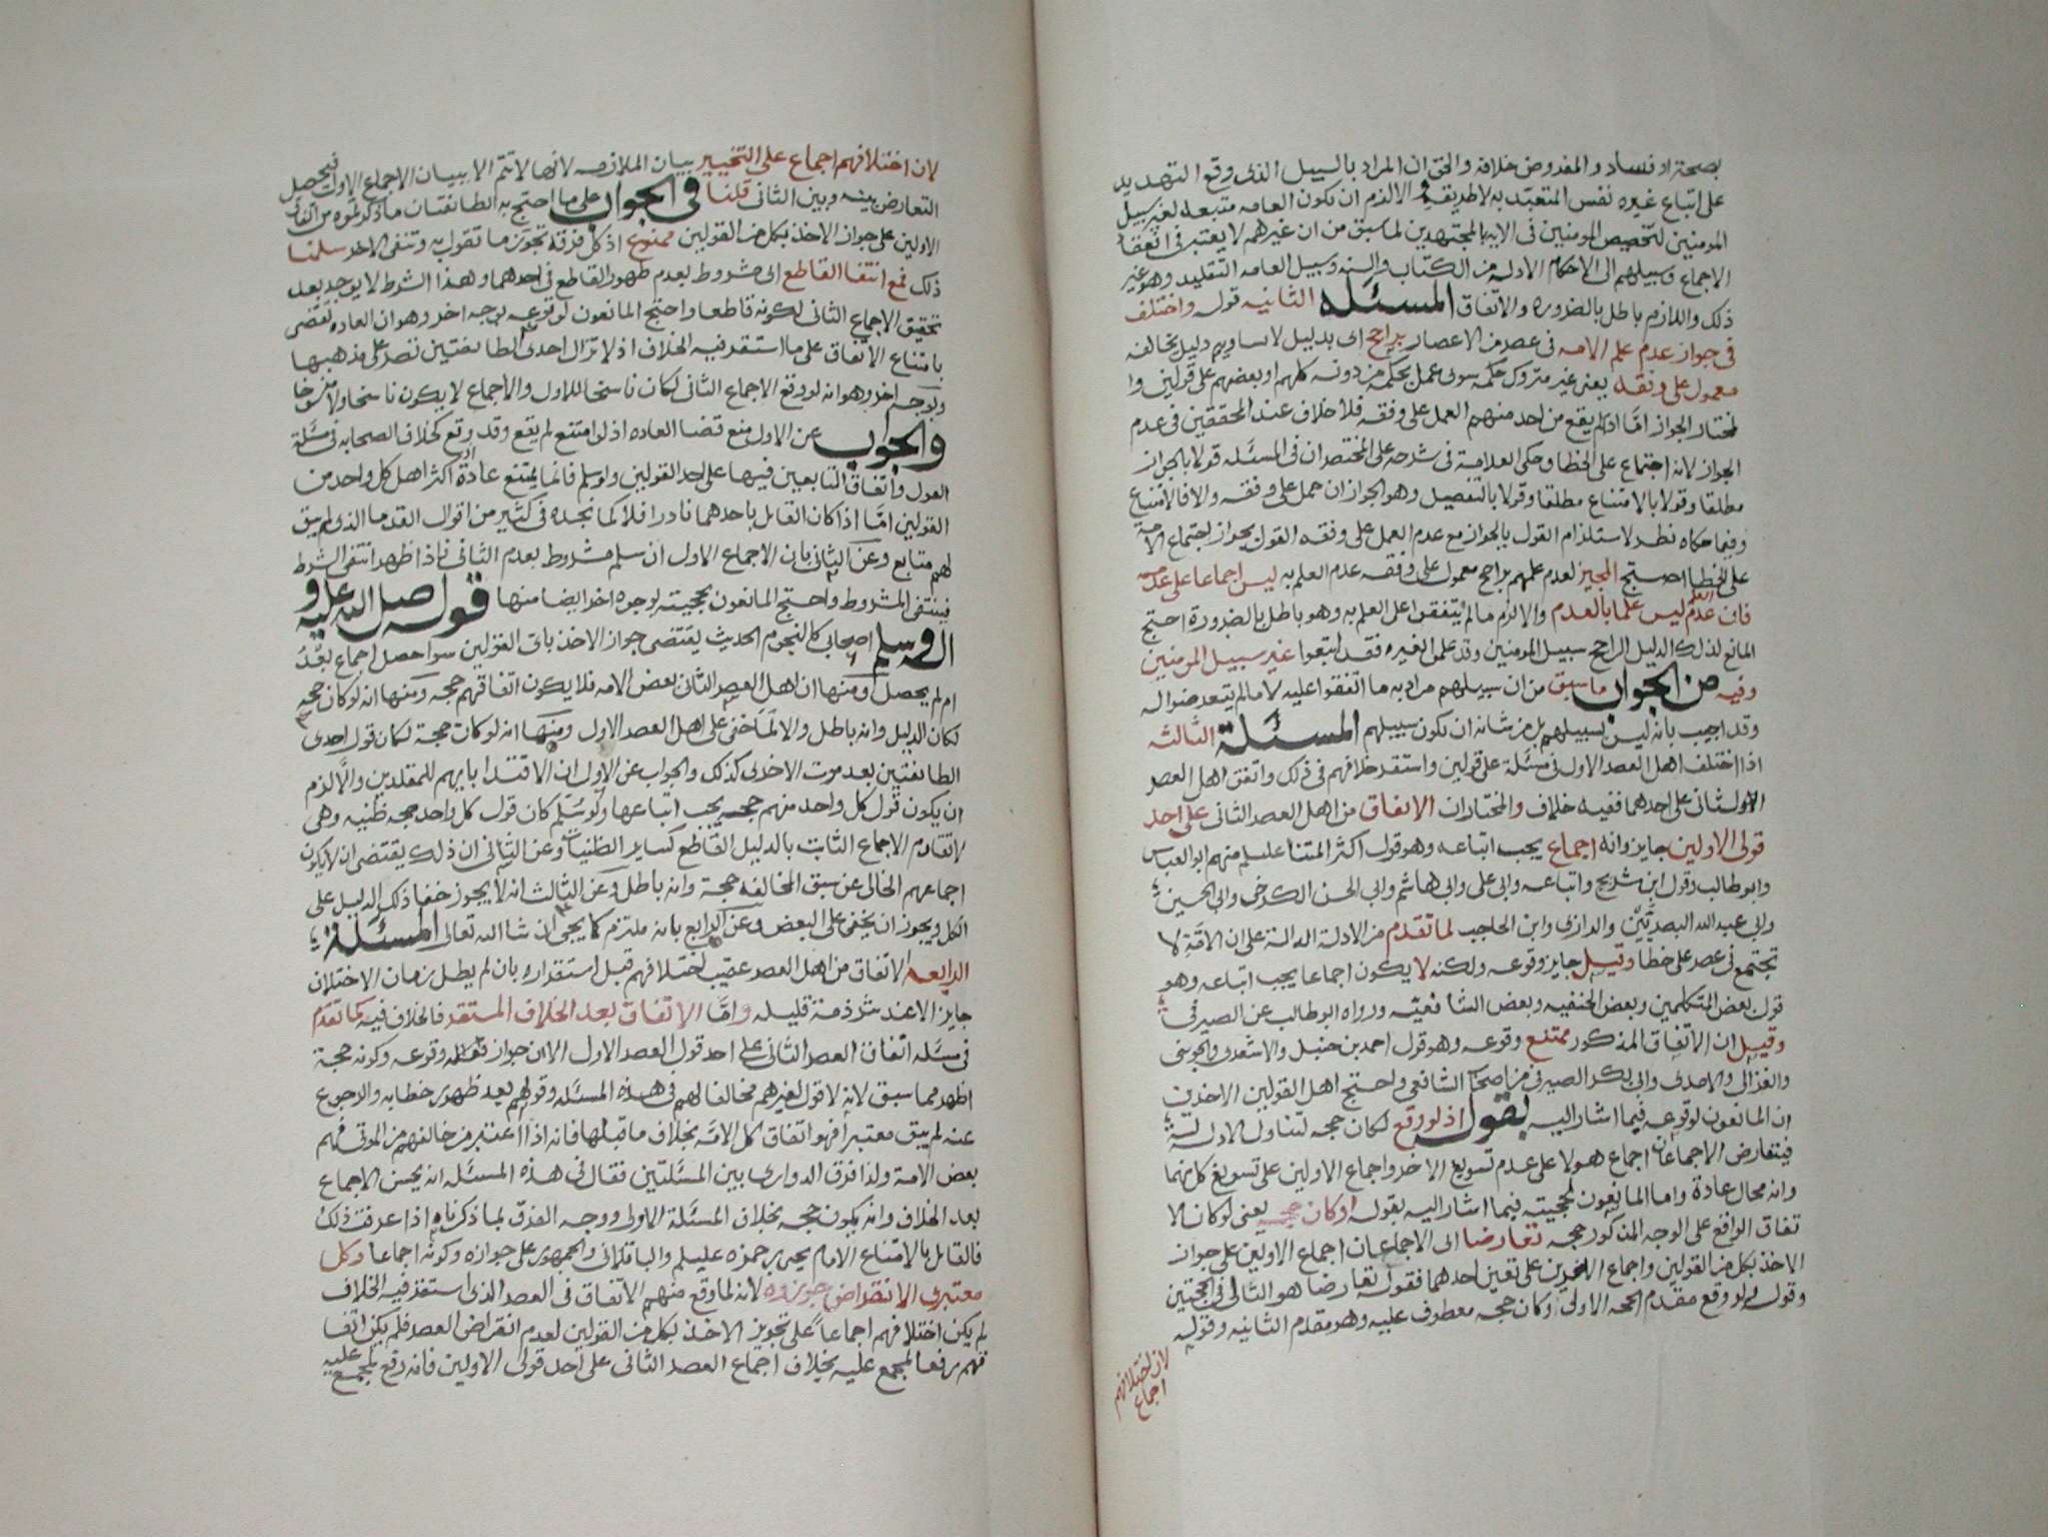 بصحة او فساد والمفروض خلافه والحق ان المراد بالسبيل الذى وقع التهديد
على اتباع غيره نفس المتعبد به لا طريقه والا لزم ان تكون العامه متبعه لغير سبيل
المومنين لتخصيص المومنين فى الايه بالمجتهدين لما سبق من ان غيرهم لا يعتبر فى انعقاد
الاجماع وسبيلهم الى الاحكام الادله من الكتاب والسنه وسبيل العامه التقليد وهو غير
ذلك واللازم باطل بالضروره والاتفاق المسئله الثانيه قوله واختلف
فى جواز عدم علم الامه فى عصر من الاعصار براجح اى بدليل لا يساويه دليل يخالفه
معمول على وفقه يعنى غير متروك حكمه سوى عمل بحكمه من دونه كلهم او بعضهم على قولين وا
لمختار الجواز امّا اذا لم يقع من احد منهم العمل على وفقه فلا خلاف عند المحققين فى عدم
الجواز لانه اجتماع على الخطا وحكى العلامة فى شرحه على المختصر ان فى المسئله قولا بالجواز
مطلقا وقولا بالامتناع مطلقا وقولا بالتفصيل وهو الجواز ان عمل على وفقه والا فالامتناع
وفيما حكاه نظر لاستلزام القول بالجواز مع عدم العمل على وفقه القول بجواز اجتماع الامة
على الخطا احتج المجيز لعدم علمهم براجح معمول على وفقه عدم العلم به ليس اجماعا على عدمه
فان عدم العلم ليس علما بالعدم والا لزم ما لم يتفقوا على العلم به وهو باطل بالضرورة احتج
المانع لذلك الدليل الراجح سبيل المومنين وقد عملوا لغيره فقد اتبعوا غير سبيل المومنين
وفيه من الجواب ما سبق من ان سبيلهم مراد به ما اتفقوا عليه لا ما لم يتعرضوا له
وقد اجيب بانه ليس لسبيلهم بل من شانه ان يكون سبيلهم المسئلة الثالثه
اذا اختلف اهل العصر الاول فى مسئلة على قولين واستقر خلافهم فى ذلك واتفق اهل العصر
الثانى على احدهما ففيه خلاف والمختار ان الاتفاق من اهل العصر الثانى على احد
قولى الاولين جايز وانه اجماع يجب اتباعه وهو قول اكثر ائمتنا عليلم منهم ابو العباس
وابو طالب وقول ابن شريح واتباعه وابى على وابى هاشم وابى الحسن الكرخى وابى الحسين
وابى عبد الله البصريّين والرازى وابن الحاجب لما تقدم من الادلة الدالة على ان الامّة لا
تجتمع فى عصر على خطا وقيل جايز وقوعه ولكنه لا يكون اجماعا يجب اتباعه وهو
قول بعض المتكلمين وبعض الحنفيه وبعض الشافعيّه ورواه ابو طالب عن الصيرفى
وقيل ان الاتفاق المذكور ممتنع وقوعه وهو قول احمد بن حنبل والاشعرى والجوينى
والغزالى والامدى وابى بكر الصيرفى من اصحاب الشافعى واحتج اهل القولين الاخرين
ان المانعون لوقوعه فيما اشار اليه بقوله اذ لو وقع لكان حجه لتناول الادلة له
فيتعارض الاجماعان اجماع هولا على عدم تسويغ الاخر واجماع الاولين على تسويغ كل منهما
وانه محال عادة واما المانعون لحجيته فيما اشار اليه بقوله او كان حجه يعنى لو كان الا
تفاق الواقع على الوجه المذكور حجه تعارضا اى الاجماعان اجماع الاولين على جواز
الاخذ بكل من القولين واجماع الاخرين على تعين احدهما فقوله تعارضا هو التالى فى الحجتين
وقوله لو وقع مقدم الحجه الاولى او كان حجه معطوف عليه وهو مقدم الثانيه وقوله
لان اختلافهم
اجماع
لان اختلافهم اجماع على التخيير بيان الملازمه لانها لا تتم الا ببيان الاجماع الاول فيحصل
التعارض بينه وبين الثانى قلنا فى الجواب على ما احتج به الطائفتان ما ذكرتموه من اتفاق
الاولين على جواز الاخذ بكل من القولين ممنوع اذ كل فرقة تجوّز ما تقول به وتنفى الاخر سلمنا
ذلك فمع انتفا القاطع اى مشروط بعدم ظهور القاطع فى احدهما وهذا الشرط لا يوجد بعد
تحقيق الاجماع الثانى لكونه قاطعا واحتج المانعون لوقوعه بوجه اخر وهو ان العاده تقضى
بامتناع الاتفاق على ما استقر فيه الخلاف اذ لا تزال احدى الطائفتين تصر على مذهبها
وبوجه اخر وهو انه لو وقع الاجماع الثانى لكان ناسخا للاول والاجماع لا يكون ناسخا ولا منسوخا
والجواب عن الاول منع قضا العاده اذ لو امتنع لم يقع وقد وقع كخلاف الصحابه فى مسئلة
العول واتفاق التابعين فيها على احد القولين ولو سلم فانما يمتنع عادة اذا كثر اهل كل واحد من
القولين امّا اذا كان القايل باحدهما نادرا فلا كما نجده فى كثير من اقوال القدما الذى لم يبق
لهم متابع وعن الثانى بان الاجماع الاول ان سلم مشروط بعدم الثانى فاذا ظهر انتفى الشرط
فينتفى المشروط واحتج المانعون بحجيته بوجوه اخر ايضا منها قوله صلى الله عليه و
اله وسلم اصحابى كالنجوم الحديث يقتضى جواز الاخذ باى القولين سوا حصل اجماع بعْدُ
ام لم يحصل ومنها ان اهل العصر الثانى بعض الامه فلا يكون اتفاقهم حجه ومنها انه لو كان حجه
لكان لدليل وانه باطل والا لما خفى على اهل العصر الاول ومنها انه لو كانت حجة لكان قول احدى
الطائفتين بعد موت الاخرى كذلك والجواب عن الاول ان الاقتدا بايهم للمقلدين والّا لزم
ان يكون قول كل واحد منهم حجه يجب اتباعها ولو سُلّم كان قول كل واحد حجه ظنيه وهى
لا تقاوم الاجماع الثابت بالدليل القاطع كساير الظنيات وعن الثانى ان ذلك يقتضى ان لا يكون
اجماعهم الخالى عن سبق المخالفه حجة وانه باطل وعن الثالث انه لا يجوز خفا ذلك الدليل على
الكل ويجوز ان يخفى على البعض وعن الرابع بانه ملتزم كما يجى ان شا الله تعالى المسئلة
الرابعه الاتفاق من اهل العصر عقيب اختلافهم قبل استقراره بان لم يطل زمان الاختلاف
جايز الا عند شرذمة قليله وامّا الاتفاق بعد الخلاف المستقر فالخلاف فيه كما تقدم
فى مسئله اتفاق العصر الثانى على احد قول العصر الاول الا ان جواز وقوعه وكونه حجة
اظهر مما سبق لانه لا قول لغيرهم مخالفا لهم فى هذه المسئله وقولهم بعد ظهور خطابه والرجوع
عنه لم يبق معتبرا فهو اتفاق كل الامّه بخلاف ما قبلها فانه اذا اعتبر من خالفهم من الموتى فهم
بعض الامة ولذا فرق الدوارى بين المسئلتين فقال فى هذه المسئله انه يحسن الاجماع
بعد الخلاف وانه يكون حجه بخلاف المسئلة الاولى ووجه الفرق لما ذكرناه اذا عرفت ذلك
فالقايل بالامتناع الامام يحيى بن حمزه عليلم والباقلانى والجمهور على جوازه وكونه اجماعا وكل
معتبرى الانقراض جوزوه لانه لما وقع منهم الاتفاق فى العصر الذى استقر فيه الخلاف
لم يكن اختلافهم اجماعا على تجويز الاخذ بكل من القولين لعدم انقراض العصر فلم يكن اتفا
قهم رفعا لمجمع عليه بخلاف اجماع العصر الثانى على احد قولى الاولين فانه رفع لمجمع عليه